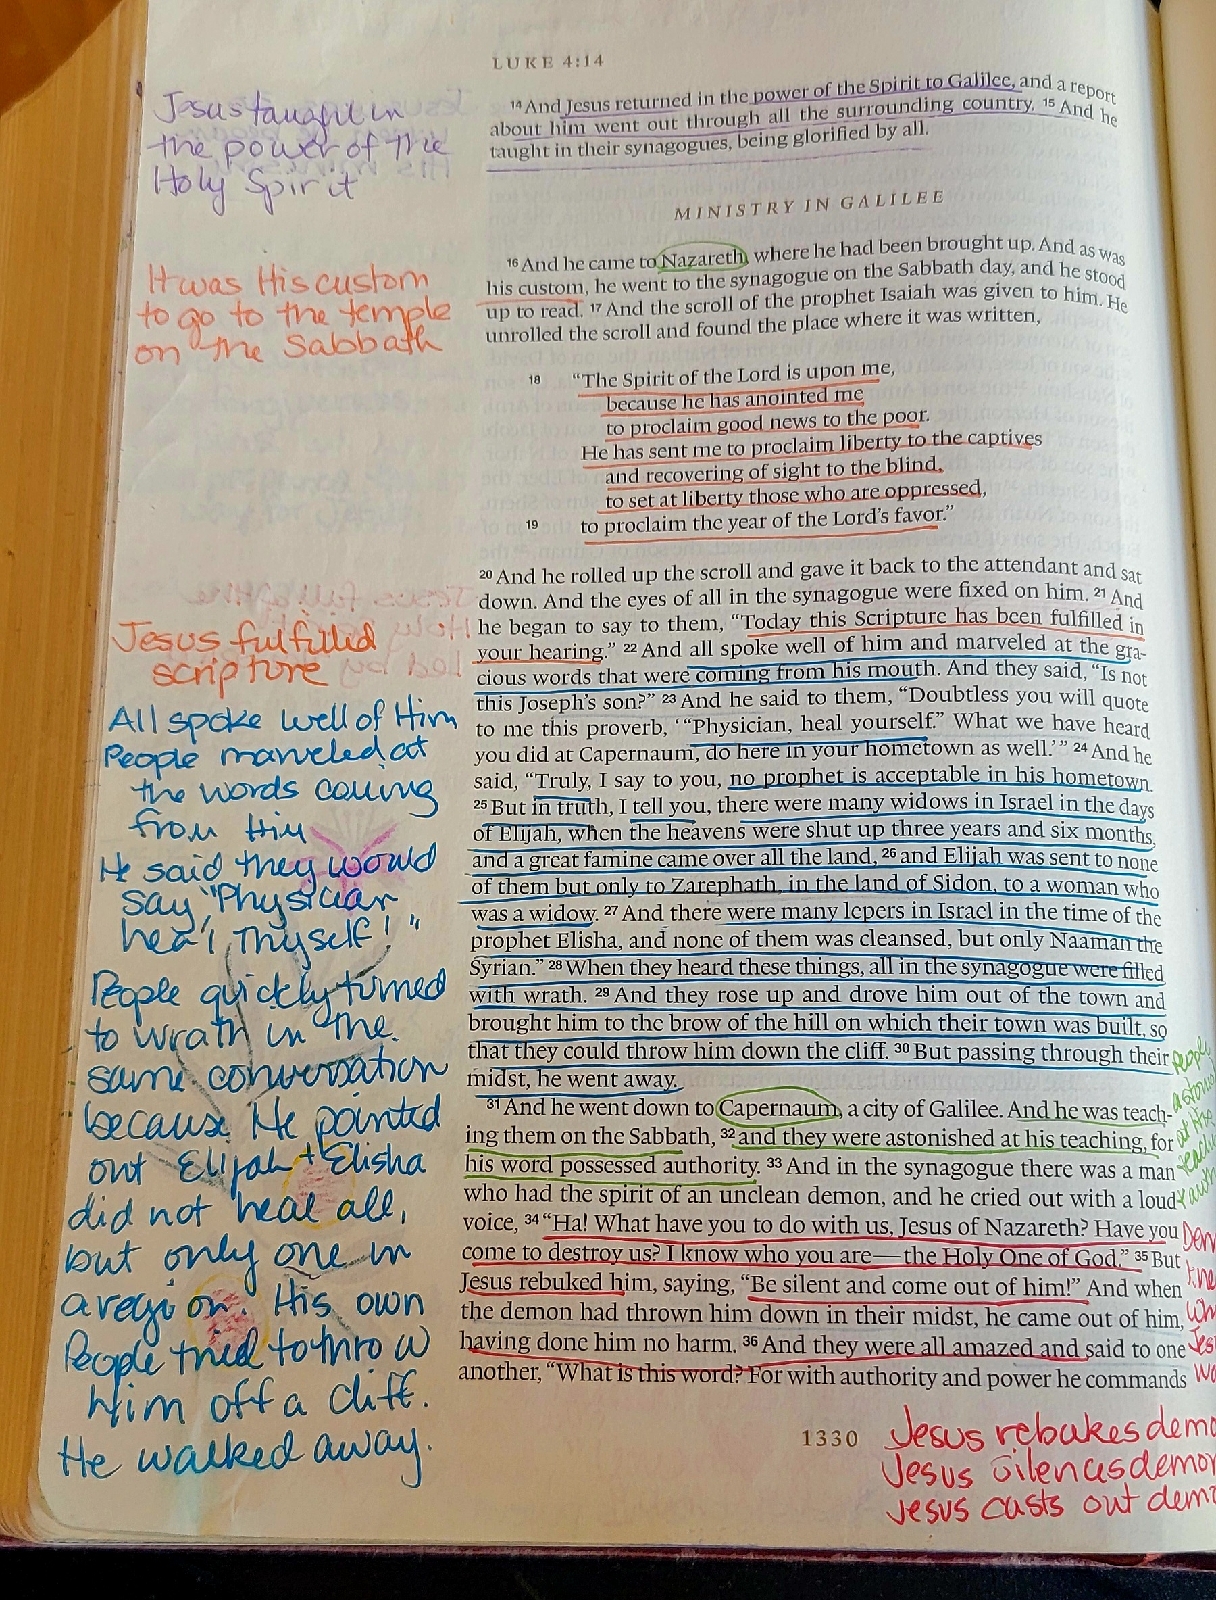 LUKE 4:14
Jesus taught in
the power of the
Holy Spirit
14 And Jesus returned in the power of the Spirit to Galilee, and a report
about him went out through all the surrounding country. 15 And he
taught in their synagogues, being glorified by all.
MINISTRY IN GALILEE
It was His custom
to go to the temple
on the Sabbath
16 And he came to Nazareth, where he had been brought up. And as was
his custom, he went to the synagogue on the Sabbath day, and he stood
up to read. 17 And the scroll of the prophet Isaiah was given to him. He
unrolled the scroll and found the place where it was written,
18 “The Spirit of the Lord is upon me,
because he has anointed me
to proclaim good news to the poor.
He has sent me to proclaim liberty to the captives
and recovering of sight to the blind,
to set at liberty those who are oppressed,
19 to proclaim the year of the Lord’s favor.”
20 And he rolled up the scroll and gave it back to the attendant and sat
down. And the eyes of all in the synagogue were fixed on him. 21 And
he began to say to them, “Today this Scripture has been fulfilled in
your hearing.” 22 And all spoke well of him and marveled at the gra-
cious words that were coming from his mouth. And they said, “Is not
this Joseph’s son?” 23 And he said to them, “Doubtless you will quote
to me this proverb, ‘“Physician, heal yourself.” What we have heard
you did at Capernaum, do here in your hometown as well.’” 24 And he
said, “Truly, I say to you, no prophet is acceptable in his hometown.
25 But in truth, I tell you, there were many widows in Israel in the days
of Elijah, when the heavens were shut up three years and six months,
and a great famine came over all the land, 26 and Elijah was sent to none
of them but only to Zarephath, in the land of Sidon, to a woman who
was a widow. 27 And there were many lepers in Israel in the time of the
prophet Elisha, and none of them was cleansed, but only Naaman the
Syrian.” 28 When they heard these things, all in the synagogue were filled
with wrath. 29 And they rose up and drove him out of the town and
brought him to the brow of the hill on which their town was built, so
that they could throw him down the cliff. 30 But passing through their
midst, he went away.
31 And he went down to Capernaum, a city of Galilee. And he was teach-
ing them on the Sabbath, 32 and they were astonished at his teaching, for
his word possessed authority. 33 And in the synagogue there was a man
who had the spirit of an unclean demon, and he cried out with a loud
voice, 34 “Ha! What have you to do with us, Jesus of Nazareth? Have you
come to destroy us? I know who you are—the Holy One of God.” 35 But
Jesus rebuked him, saying, “Be silent and come out of him!” And when
the demon had thrown him down in their midst, he came out of him,
having done him no harm. 36 And they were all amazed and said to one
another, “What is this word? For with authority and power he commands
Jesus fulfilled
scripture
All spoke well of Him
People marveled at
the words coming
from Him
He said they would
say, "Physician
heal, Thyself!"
People quickly turned
to wrath in the
same conversation
because He pointed
out Elijah + Elisha
did not heal all,
but only one in
a region. His own
People tried to throw
Him off a cliff.
He walked away.
People
at the
1330
Jesus rebukes demo
Jesus silences demon
Jesus casts out dem